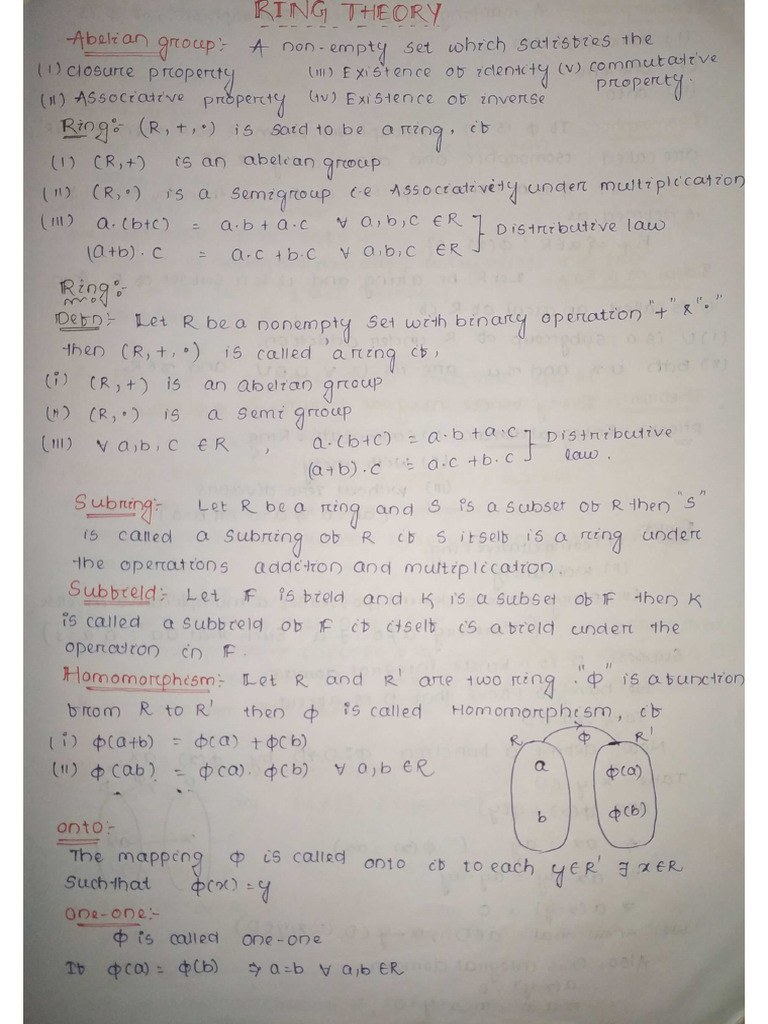 RING THEORY
Abelian group:- A non-empty set which satisfies the
(i) closure property (iii) Existence of identity (v) commutative
property.
(ii) Associative property (iv) Existence of inverse
Ring:- (R, +, •) is said to be a ring, if
(i) (R, +) is an abelian group
(ii) (R, •) is a semigroup i.e Associativity under multiplication
(iii) a.(b+c) = a.b + a.c ∀ a, b, c ∈R ] Distributive law
(a+b).c = a.c + b.c ∀ a, b, c ∈R
Ring:-
Defn:- Let R be a nonempty set with binary operation "+" & "•"
then (R, +, •) is called a ring if,
(i) (R, +) is an abelian group
(ii) (R, •) is a semi group
(iii) ∀ a, b, c ∈R , a.(b+c) = a.b + a.c ] Distributive
(a+b).c = a.c + b.c law.
Subring:- Let R be a ring and S is a subset of R then "S"
is called a subring of R if S itself is a ring under
the operations addition and multiplication.
Subfield:- Let F is field and K is a subset of F then K
is called a subfield of F if itself is a field under the
operation in F.
Homomorphism:- Let R and R' are two ring . "Φ" is a function
from R to R' then Φ is called Homomorphism, if
(i) Φ(a+b) = Φ(a) + Φ(b)
(ii) Φ(ab) = Φ(a). Φ(b) ∀ a, b ∈R
R Φ R'
a Φ(a)
b Φ(b)
onto:-
The mapping Φ is called onto if to each y∈R' ∃ x∈R
Such that Φ(x) = y
one-one:-
Φ is called one-one
If Φ(a) = Φ(b) ⇒ a=b ∀ a, b ∈R